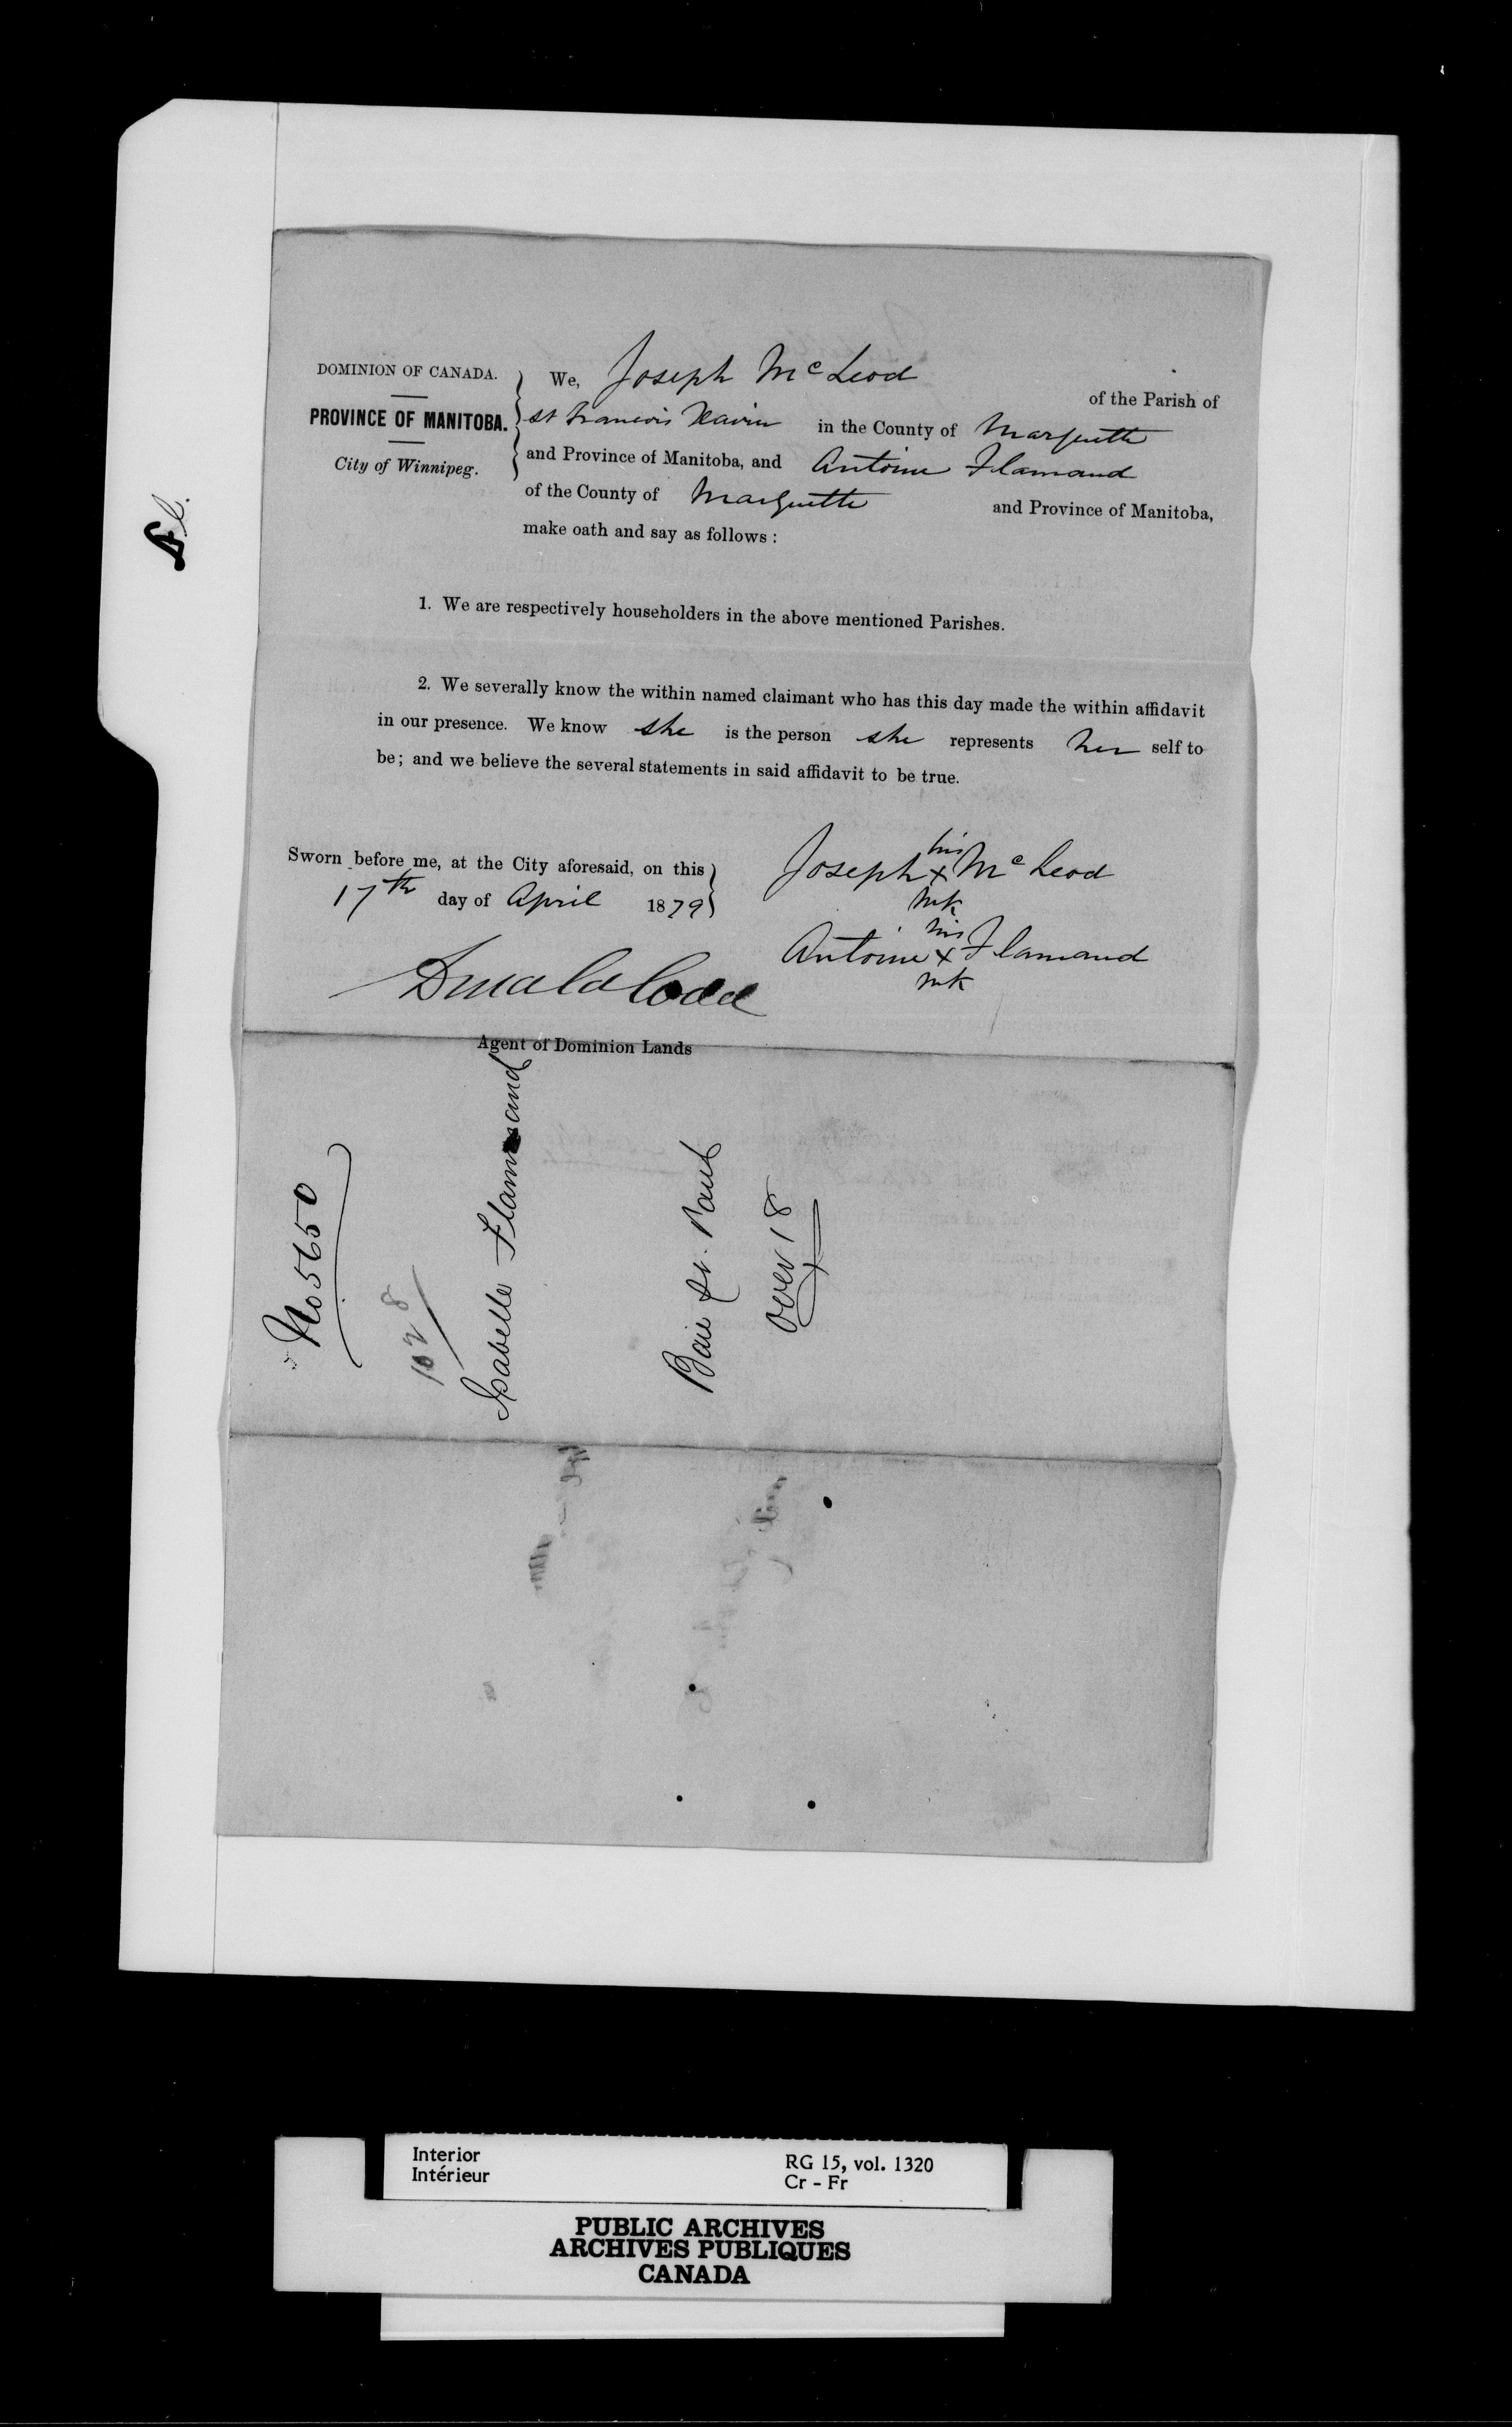 DOMINION OF CANADA.
PROVINCE OF MANITOBA.
City of Winnipeg.
We, Joseph McLeod of the Parish of
St Francois Xavier in the County of Marquette
and Province of Manitoba, and Antoine Flamand
of the County of Marquette and Province of Manitoba,
make oath and say as follows:
1. We are respectively householders in the above mentioned Parishes.
2. We severally know the within named claimant who has this day made the within affidavit
in our presence. We know she is the person she represents her self to
be; and we believe the several statements in said affidavit to be true.
Sworn before me, at the City aforesaid, on this
17th day of April 1879
Joseph his x mk McLeod
Antoine his x mk Flamand
Donald Codd
Agent of Dominion Lands
No 5650
1028
Isabelle Flamand
Baie St. Paul
Over 18
Interior
Intérieur
RG 15, vol. 1320
Cr - Fr
PUBLIC ARCHIVES
ARCHIVES PUBLIQUES
CANADA